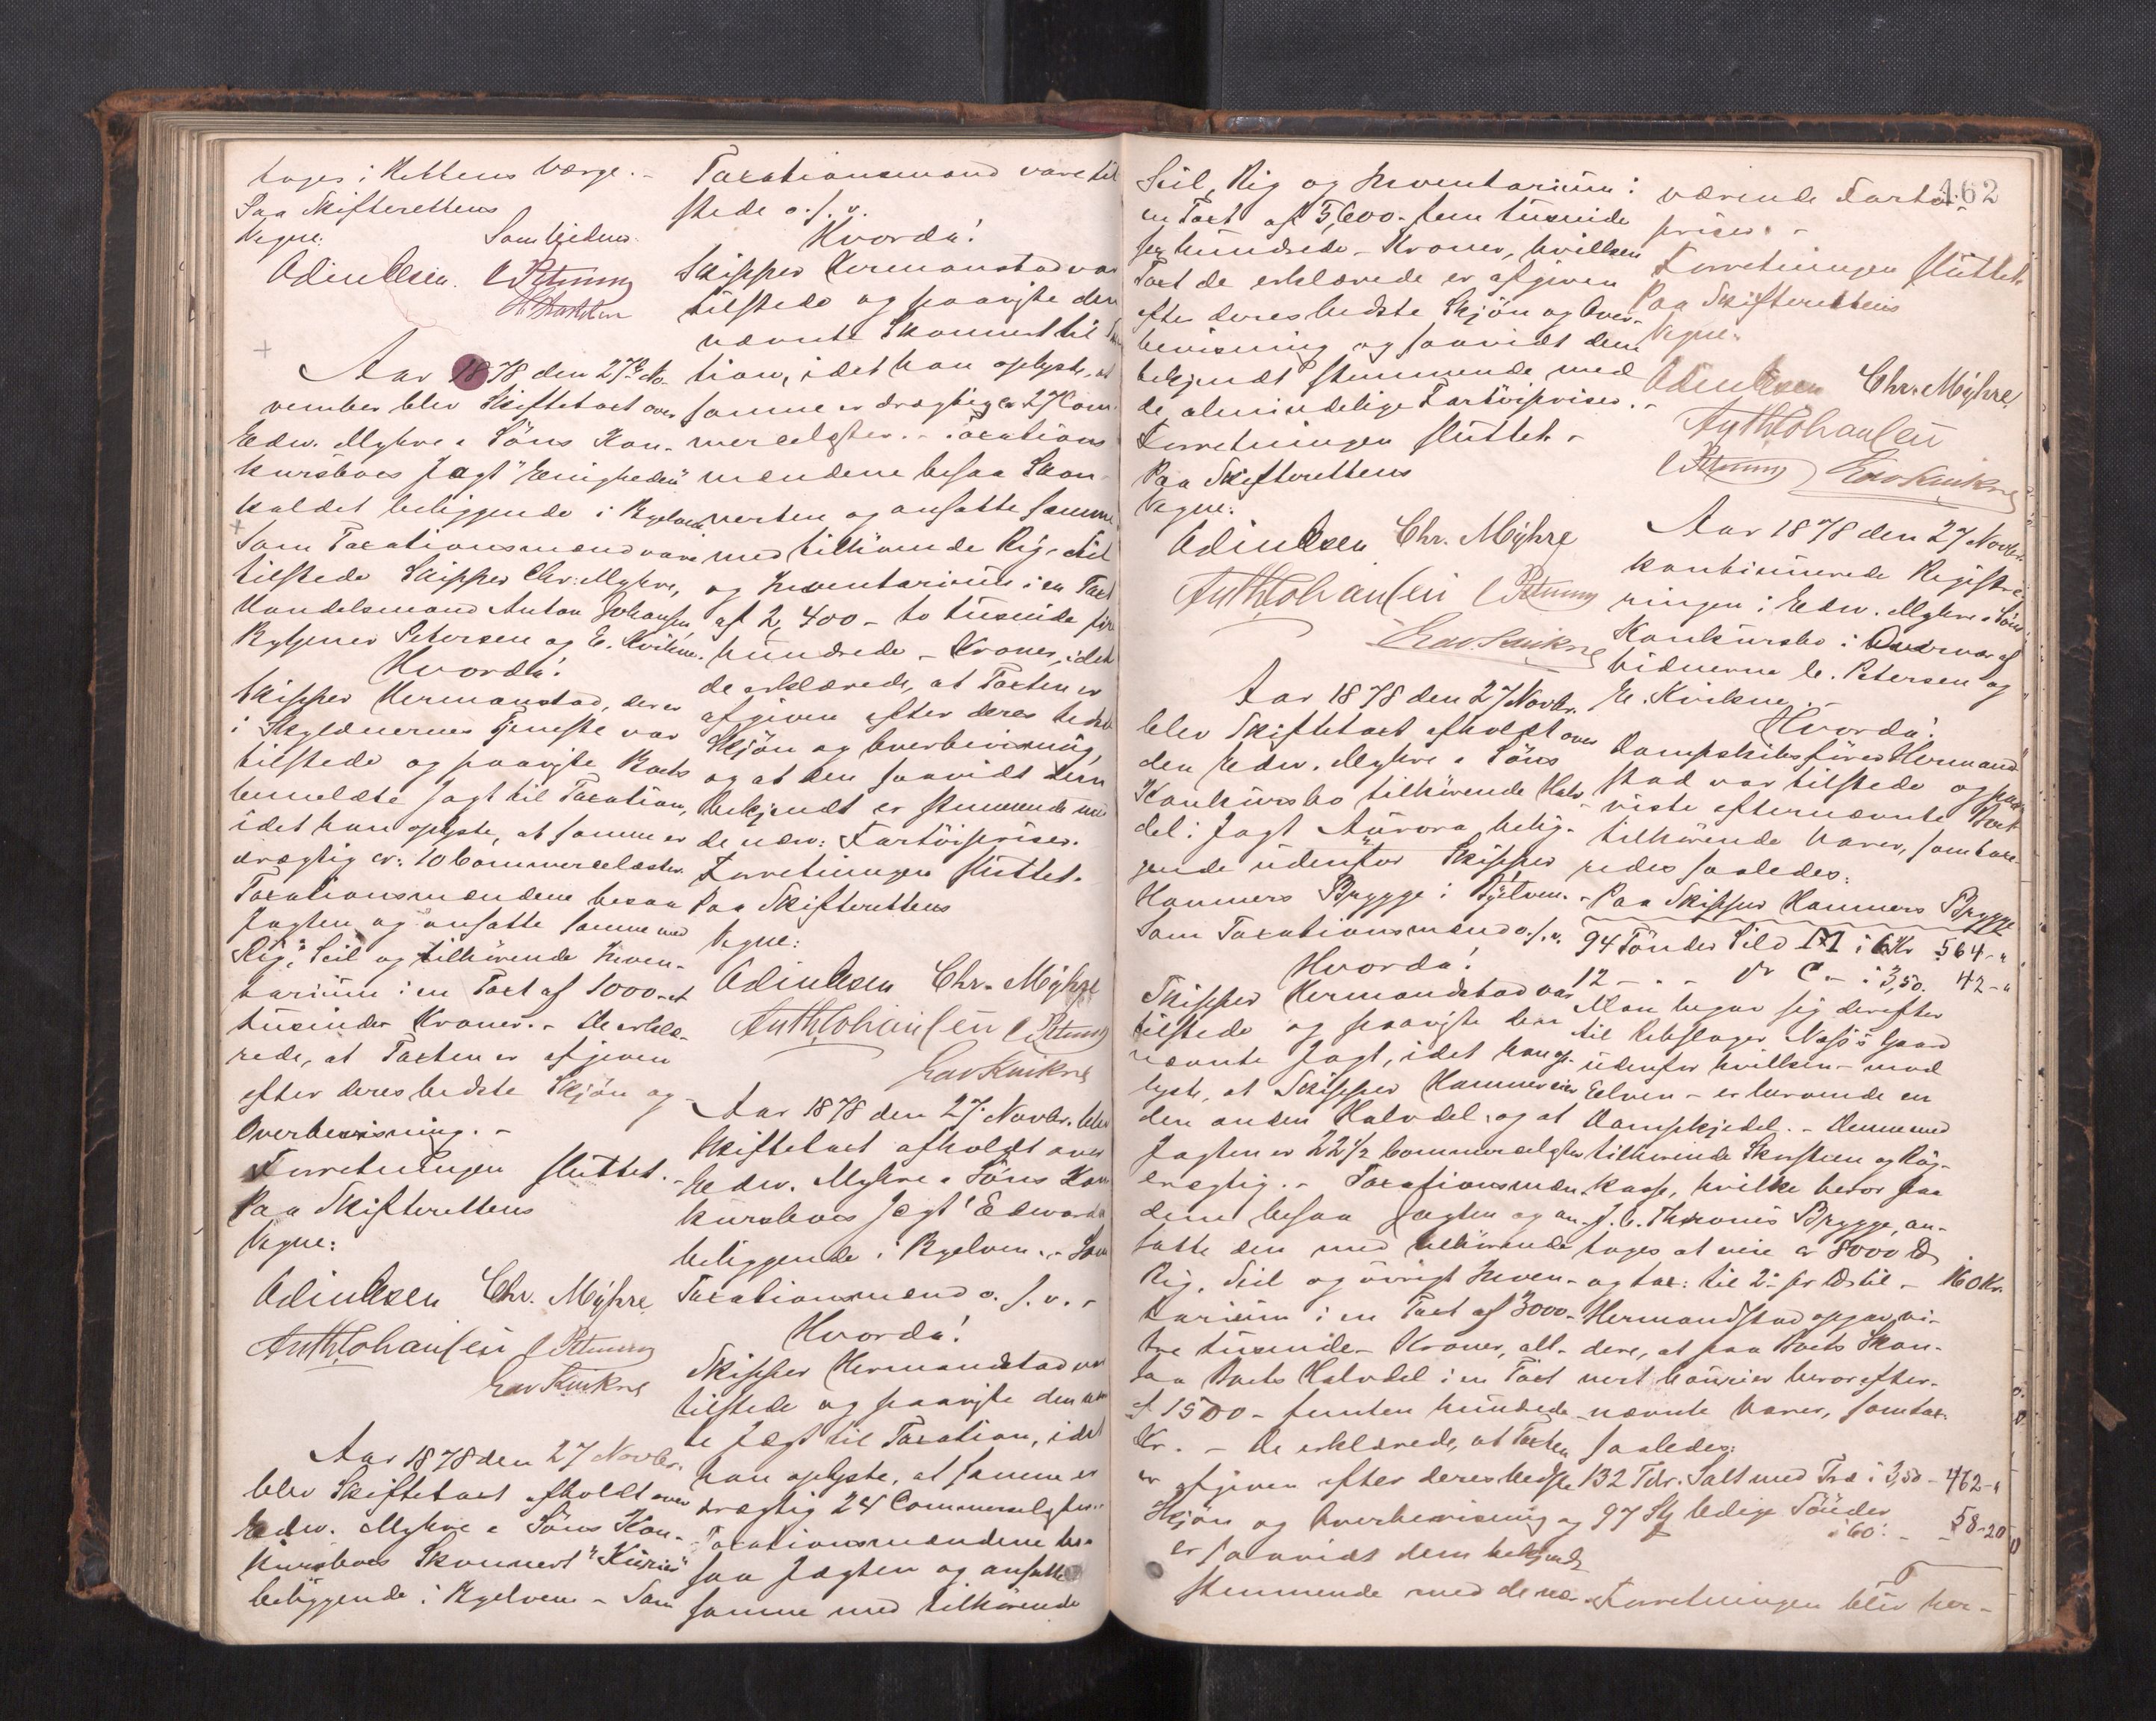 tages i Rettens Værge. -
Paa Skifterettens
Vegne:
Som Vidner.
Odin Olsen. C Petersen
Aar 1878 den 27de No-
vember blev Skiftetaxt over
Edw. Myhre & Söns Kon-
kursboes Jagt "Enigheden"
kaldet beliggende i Byelven
Som Taxationsmænd vare
tilstede Skipper Chr: Myhre,
Handelsmand Anton Johansen
Rebslager Petersen og E. Kvikne.
Hvorda!
Skipper Hermanstad, der er
i Skyldnernes Tjeneste var
tilstede og paaviste Boets
bemeldte Jagt til Taxation,
idet han oplyste, at samme er
drægtig cr: 10 Commercelæster.
Taxationsmændene besaa
Jagten og ansatte samme med
Rig, Seil og tilhörende Inven-
tarium i en Taxt af 1000 - et
tusinde Kroner. - De erklæ-
rede, at Taxten er afgiven
efter deres bedste Skjön og
Overbevisning. -
Forretningen sluttet. -
Paa Skifterettens
Vegne:
Odin Olsen Chr. Myhre
Ant Johansen C Petersen
Edv Kvikne
Aar 1878 den 27 Novbr.
blev Skiftetaxt afholdt over
Edw. Myhre & Söns Kon-
kursboes Skonnert "Kurier"
beliggende i Byelven - Som
Taxationsmænd vare til
stede o. s. v.
Hvorda!
Skipper Hermanstad var
tilstede og paaviste den
nævnte Skonnert til Taxa
tion, idet han oplyste, at
samme er drægtig ca 27 Com-
mercelæster. - Taxations
mændene besaa Skon-
nerten og ansatte samme
med tilhörende Rig, Seil
og Inventarium i en Taxt
af 2,400 - to tusinde fire
hundrede - Kroner, idet
de erklærede, at Taxten er
afgiven efter deres bedste
Skjön og Overbevisning,
og at den saavidt dem
bekjendt er stemmende med
de nærv: Fartöispriser.
Forretningen sluttet.
Paa Skifterettens
Vegne:
Odin Olsen Chr. Myhre
Ant Johansen C Petersen
Edv Kvikne
Aar 1878 den 27. Novbr. blev
Skiftetaxt afholdt over
Edw. Myhre & Söns Kon
kursboes Jagt "Edwarda"
beliggende i Byelven. - Som
Taxationsmænd o. s. v. -
Hvorda!
Skipper Hermandstad var
tilstede og paaviste den nævn
te Jagt til Taxation, idet
han oplyste, at samme er
drægtig 24 Commercelæster. -
Taxationsmændene be-
saa Jagten og ansatte
samme med tilhörende
162
Seil, Rig og Inventarium i
en Taxt af 5,600 - fem tusinde
sex hundrede - Kroner, hvilken
Taxt de erklærede er afgiven
efter deres bedste Skjön og Over-
bevisning og saavidt dem
bekjendt stemmende med
de almindelige Fartöispriser. -
Forretningen sluttet. -
Paa Skifterettens
Vegne:
Odin Olsen Chr. Myhre
Ant Johansen C Petersen
Edv. Kvikne
Aar 1878 den 27 Novbr.
blev Skiftetaxt afholdt over
den Edw. Myhre & Söns
Konkursbo tilhörende Halv-
del i Jagt Aurora, belig-
gende udenfor Skipper
Hanners Brygge i Byelven. -
Som Taxationsmænd o. s. v.
Hvorda!
Skipper Hermandstad var
tilstede og paaviste den
nævnte Jagt, idet han op-
lyste, at Skipper Hanner eier
den anden Halvdel, og at
Jagten er 22 1/2 Commercelæster
drægtig. - Taxationsmæn-
dene besaa Jagten og an-
satte den med tilhörende
Rig, Seil og övrigt Inven-
tarium i en Taxt af 3000 -
tre tusinde - Kroner, alt-
saa Boets Halvdel i en Taxt
af 1500 - femten hundrede
Kr. - De erklærede, at Taxten
er afgiven efter deres bedste
Skjön og Overbevisning og
er saavidt dem bekjendt
stemmende med de nær-
værende Fartöis-
priser. -
Forretningen sluttet.
Paa Skifterettens
Vegne:
Odin Olsen Chr. Myhre
Ant Johansen
C Petersen Edv Kvikne
Aar 1878 den 27 Novbr.
kontinuerede Registre-
ringen i Edw. Myhre & Söns
Konkursbo i Overvær af
Vidnerne C. Petersen og
E. Kvikne. -
Hvorda!
Dampskibsförer Hermand-
stad var tilstede og paa-
viste efternævnte Boet
tilhörende Varer, som taxe-
redes saaledes:
Paa Skipper Hanners Brygge
94 Tönder Sild M i 6 Kr 564 - "
12 - " - C - i 3,50. 42 - "
Man begav sig derefter
til Rebslager Nass's Gaard
udenfor hvilken - mod
Eelven - er liggende en
Dampkjedel. - Denne med
tilhörende Skorsteen og Rög-
kasse, hvilke beror paa
J. C. Thronis Brygge, an-
toges at veie ca 8000 ℔
og tax: til 2 öre ℔ til - 160 Kr.
Hermandstad opgav vi-
dere, at paa Boets Skon-
nert Kourier beror efter-
nævnte Varer, som tax.
saaledes:
132 Tdr. Salt med Træ i 3,50 - 462 - "
97 Stk ledige Tönder
i 60: - 58 - 20
Forretningen blev her-